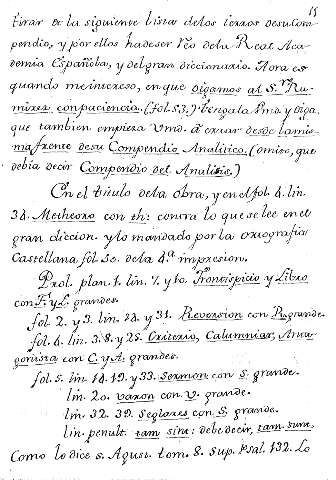 15
tirar de la siguiente lista de los ierros de su Com-
pendio, y por ellos ha de ser Reo de la Real Aca-
demia Española, y del gran diccionario. Aora es
quando me intereso, en que oigamos al S.r Ra-
mirez con paciencia (fol. 53.) tengala Vmd. y diga,
que tambien empieza Vmd. à errar desde la mis-
ma frente de su Compendio Analitico. (omito, que
debia decir Compendio del Analisis.)
En el titulo de la obra, y en el fol. 4. lin.
34. Metheoro con th: contra lo que se lee en el
gran diccion. y lo mandado por la ortografia
Castellana fol. 50. de la 4.a impresion.
Prol. plan. 1. lin. 7. y 10. Frontispicio y Libro
con F. y L. grandes.
fol. 2. y 3. lin. 14. y 31. Reversion con R. grande.
fol. 4. lin. 3. 8. y 25. Criterio, Calumniar, Anta-
gonista con C. y A. grandes.
fol. 5. lin. 14. 19. y 33. Sermon con S. grande.
lin. 20. varon con V. grande.
lin. 32. 39. Seglares con S. grande.
lin. penult. tam sint: debe decir, tam sunt,
Como lo dice S. Agust. tom. 8. sup. Psal. 132. Lo